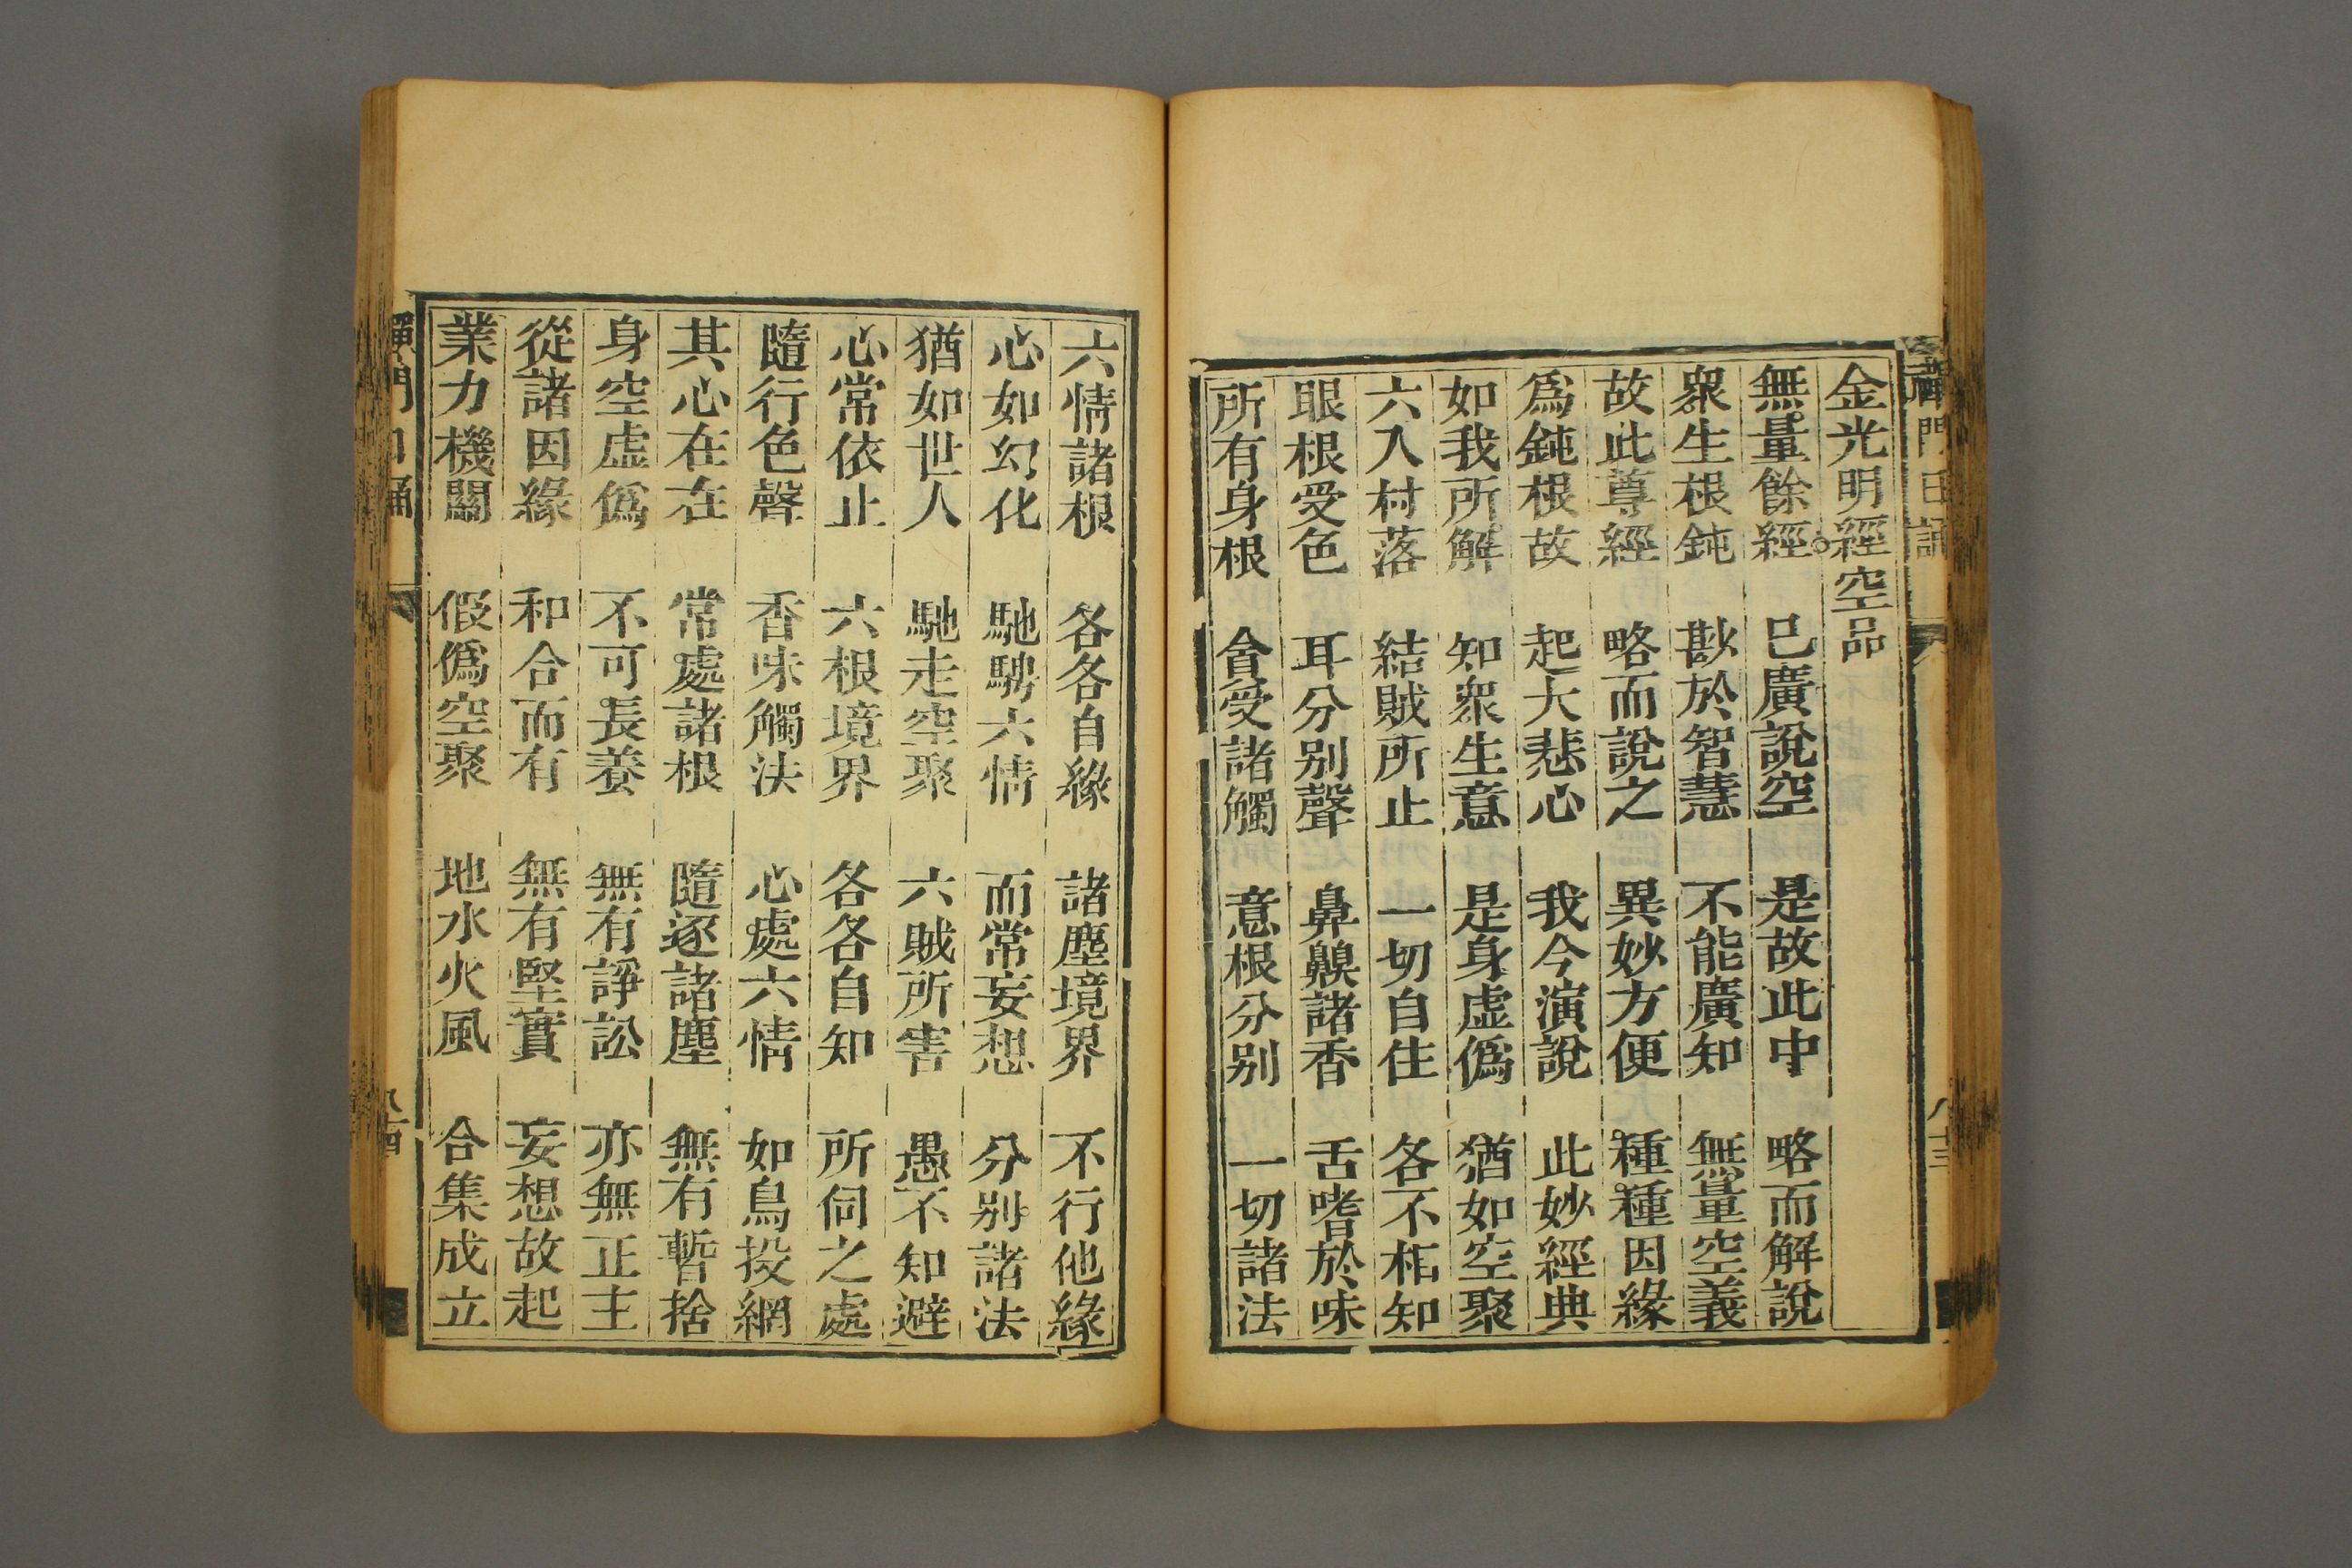 金光明經空品
無量餘經 已廣說空 是故此中 略而解說
衆生根鈍 尠於智慧 不能廣知 無量空義
故此尊經 略而說之 異妙方便 種種因緣
爲鈍根故 起大悲心 我今演說 此妙經典
如我所解 知衆生意 是身虛僞 猶如空聚
六入村落 結賊所止 一切自住 各不相知
眼根受色 耳分別聲 鼻齅諸香 舌嗜於味
所有身根 貪受諸觸 意根分別 一切諸法
六情諸根 各各自緣 諸塵境界 不行他緣
心如幻化 馳騁六情 而常妄想 分別諸法
猶如世人 馳走空聚 六賊所害 愚不知避
心常依止 六根境界 各各自知 所伺之處
隨行色聲 香味觸法 心處六情 如鳥投網
其心在在 常處諸根 隨逐諸塵 無有暫捨
身空虛僞 不可長養 無有諍訟 亦無正主
從諸因緣 和合而有 無有堅實 妄想故起
業力機關 假僞空聚 地水火風 合集成立